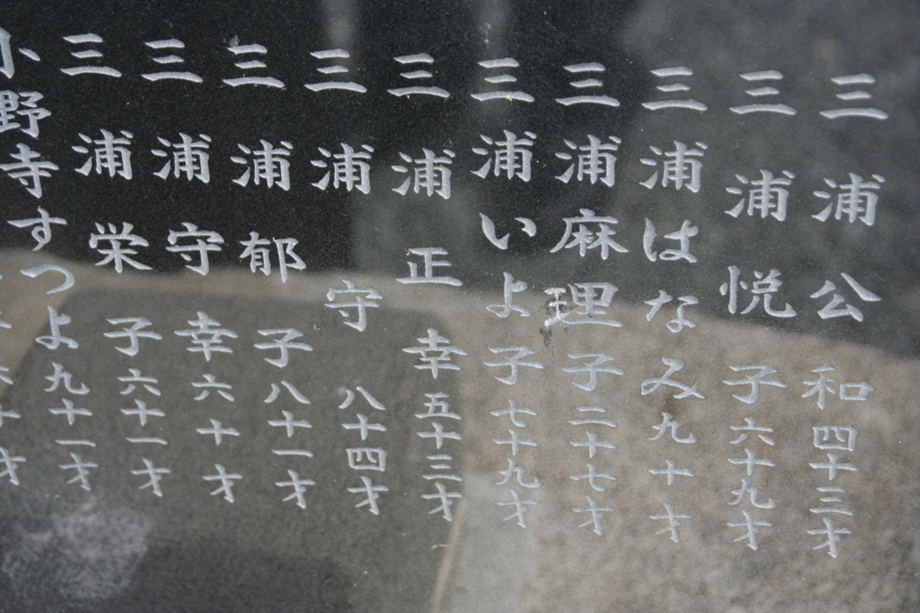 三浦公和四十三才
三浦悦子六十九才
三浦はなみ九十才
三浦麻理子二十七才
三浦いよ子七十九才
三浦正幸五十三才
三浦守八十四才
三浦郁子八十一才
三浦守幸六十才
三浦栄子六十一才
小野寺すつよ九十一才